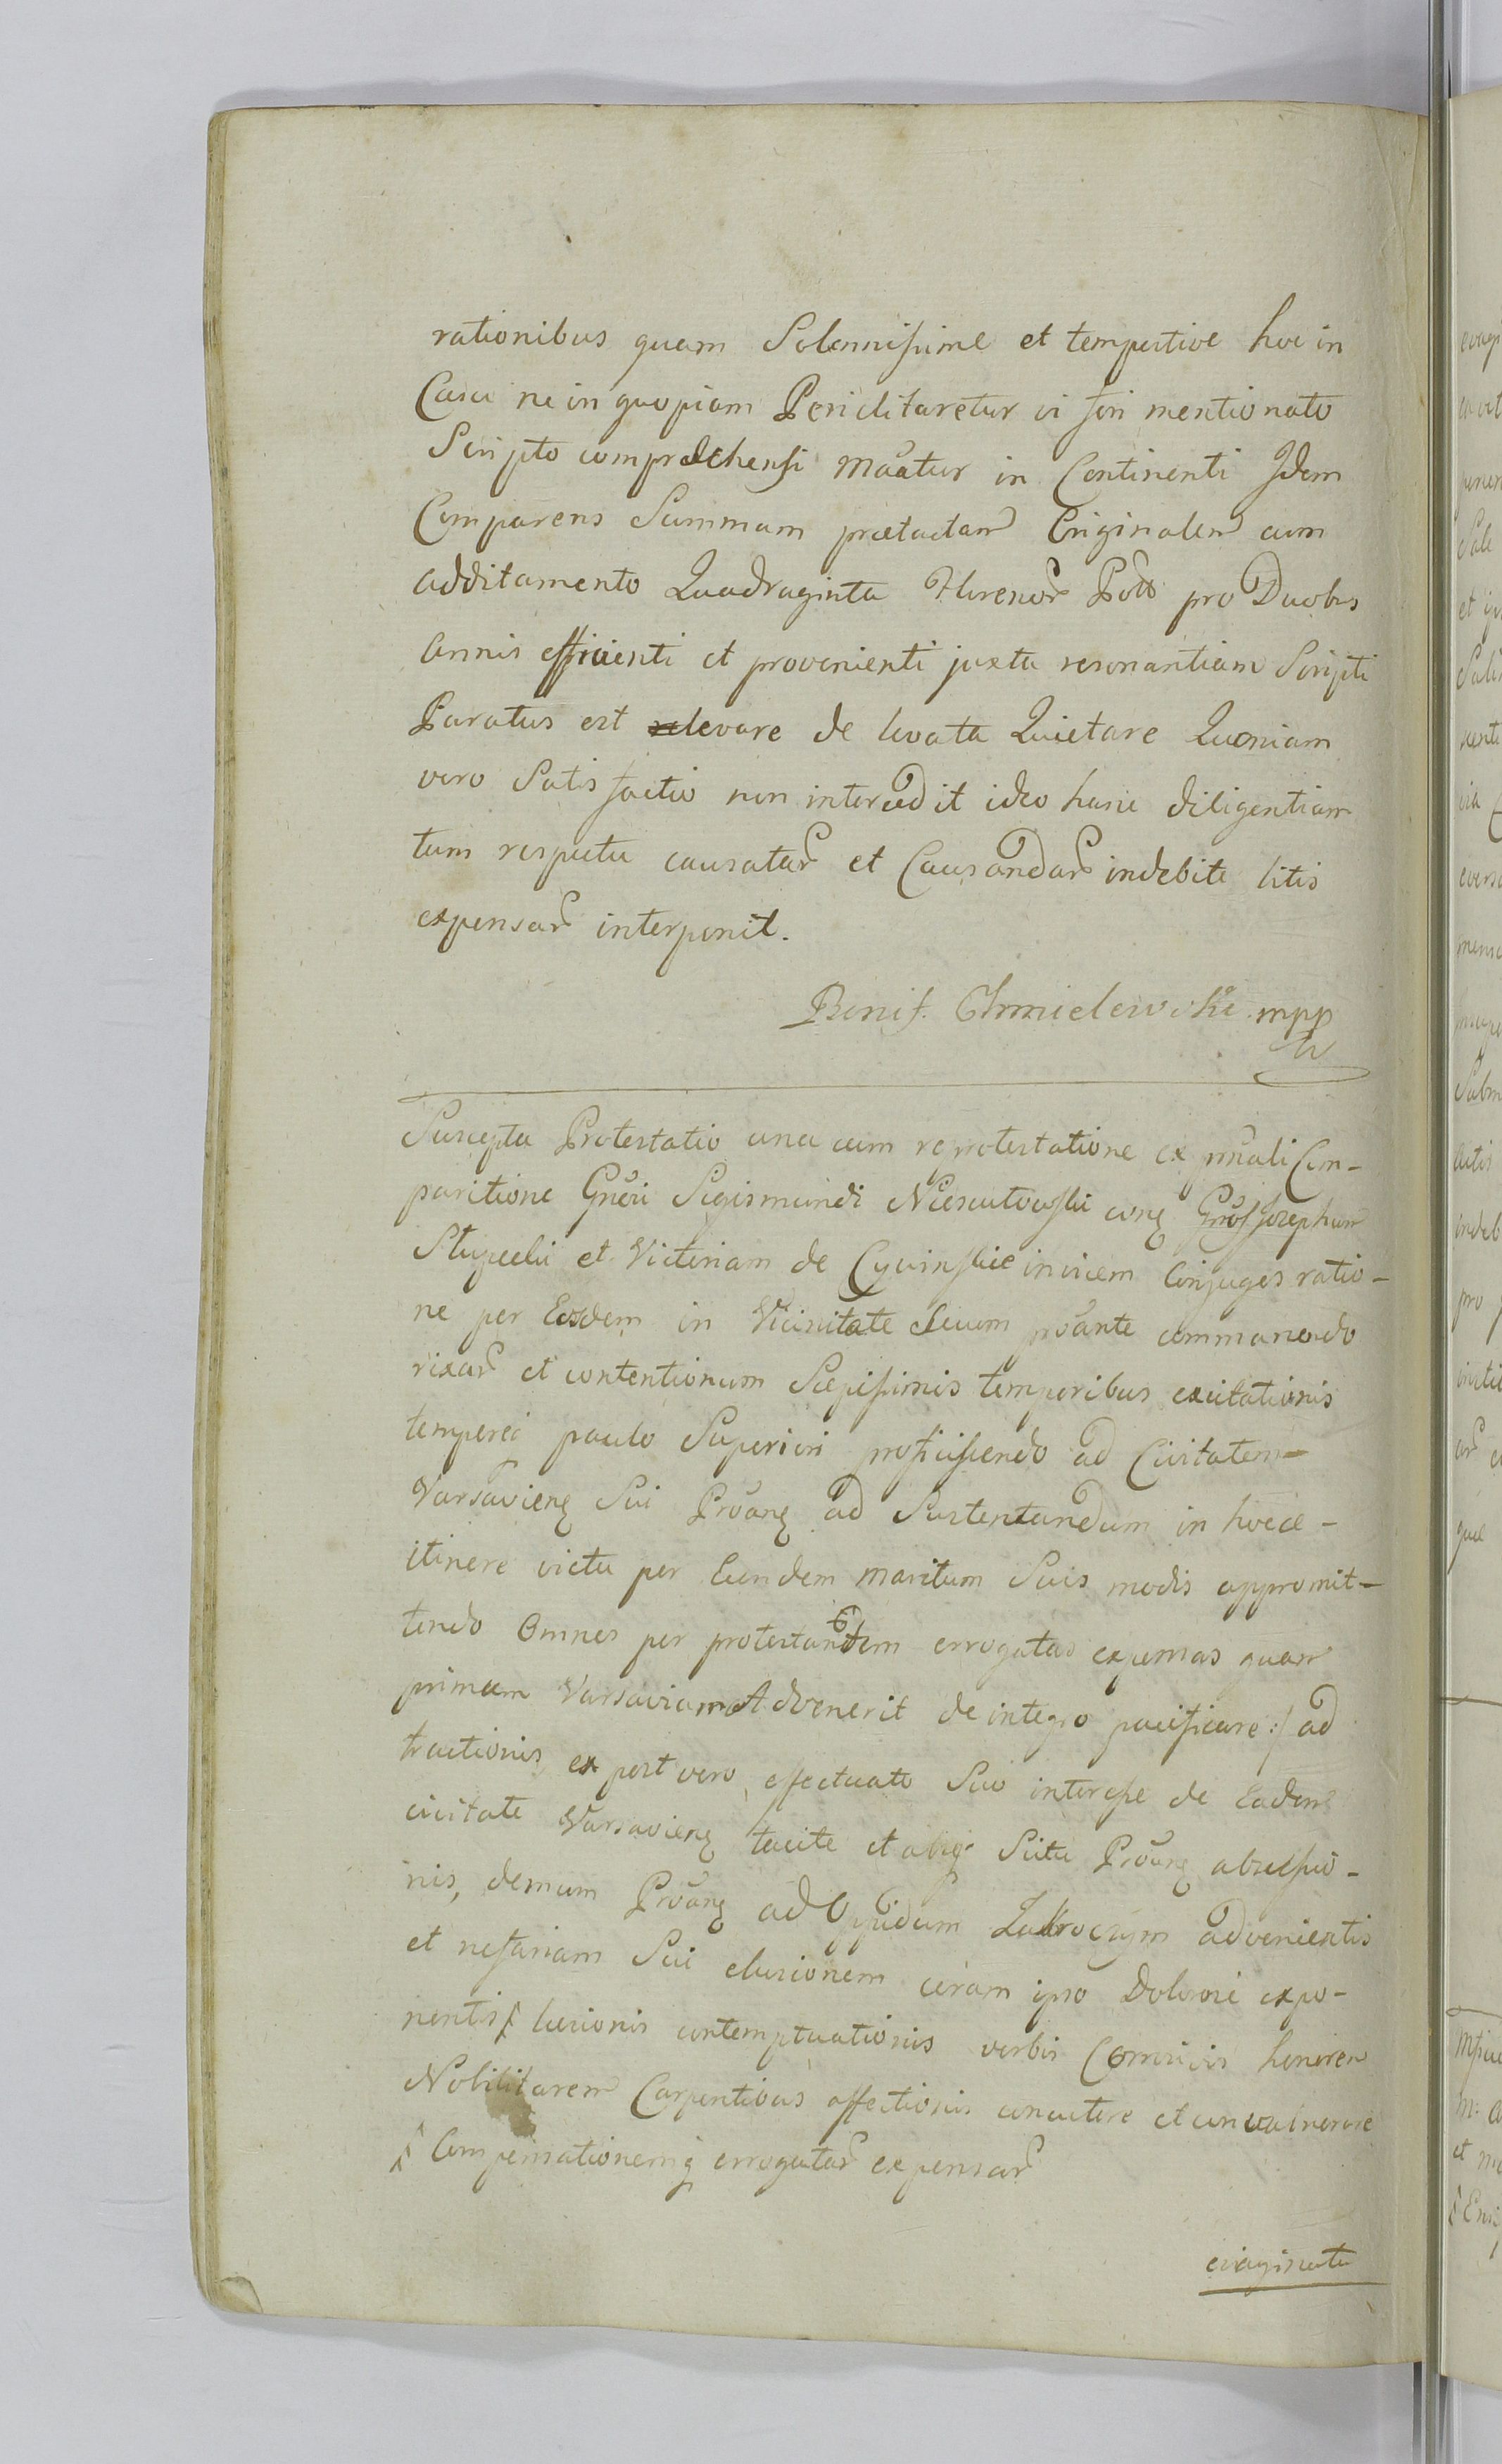 rationibus quam Solennissime et tempestive hoc in
Casu ne in quopiam Periclitaretur vi sui mentionato
Scripto compraehensi Maatur in Continenti Idem
Comparens Summam praetactam Originalem cum
additamento Quadraginta Florenor Poll pro Duobus
Annis efficienti et provenienti juxta resonantiam Scripti
Paratus est levare de levata Quietare Quoniam
vero Satisfactio non intercedit ideo hanc diligentiam
tum respectu causatar et Causandar indebite litis
expensar interponit.
Bonif. Chmielewski mpp
Suscepta Protestatio una cum reprotestatione ex pnali Com-
paritione Gnosi Sigismundi Niescutowski conq Gnos Josephum
Stupecki et Victoriam de Cywinskie invicem Conjuges ratio-
ne per Eosdem in Vicinitate Secum proante commanendo
rixar et contentionum Saepissimis temporibus excitationis
tempore paulo Superiori proficiscendo ad Civitatem
Varsavienq Sui Proanq ad Sustentandum in hocce
itinere victu per Eundem Maritum Suis modis appromit-
tendo Omnes per protestantem errogatas expensas quam
primum Varsaviam Advenerit de integro pacificare :/ ad
tractionis, ex post vero effectuato Suo interesse de Eadem
civitate Varsavienq tacite et absq Scitu Proanq abscessio-
nis, demum Proanq ad Oppidum Zakroczym advenientis
et nefariam Sui elusionem coram ipso Dolorose expo-
nentis lusionis contemptuationis verbis Corrosivis honorem
Nobilitarem Carpentibus affectionis concutere et convulnerare
Compensationemq errogatar expensar
evaginata